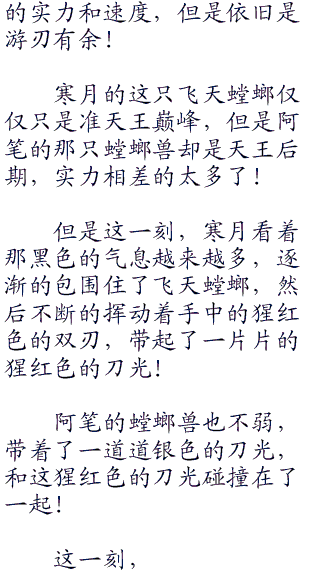 的实力和速度，但是依旧是
游刃有余！
寒月的这只飞天螳螂仅
仅只是准天王巅峰，但是阿
笔的那只螳螂兽却是天王后
期，实力相差的太多了！
但是这一刻，寒月看着
那黑色的气息越来越多，逐
渐的包围住了飞天螳螂，然
后不断的挥动着手中的猩红
色的双刃，带起了一片片的
猩红色的刀光！
阿笔的螳螂兽也不弱，
带着了一道道银色的刀光，
和这猩红色的刀光碰撞在了
一起！
这一刻，